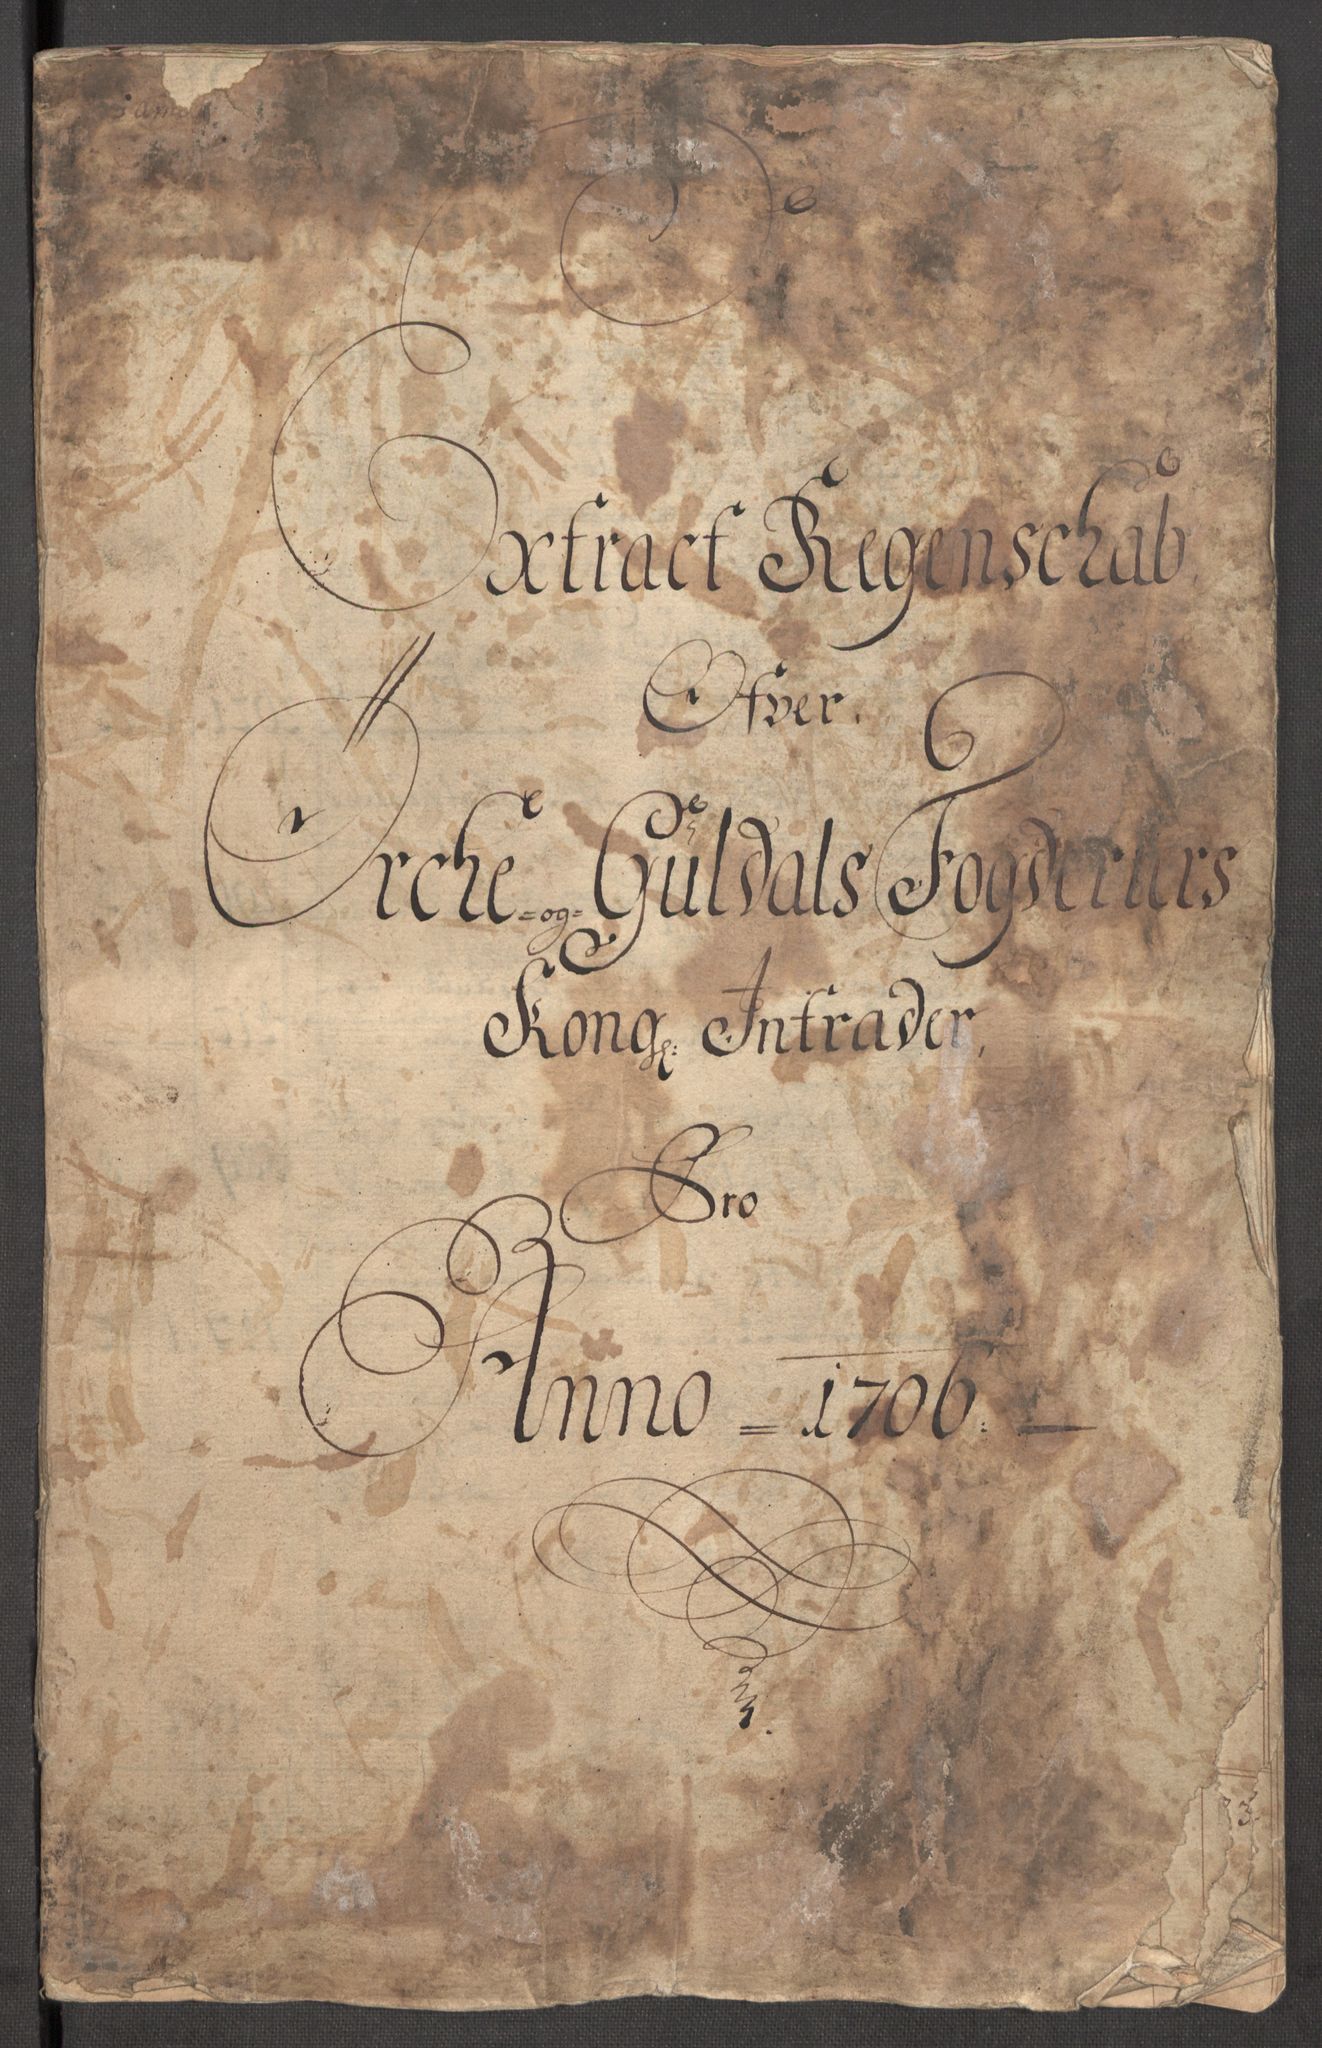 Extract Regenschab
Ofver.
Orche =og= Güldals Fogderiers
Kongl: Intrader,
Pro
Anno = 1706. —
3.